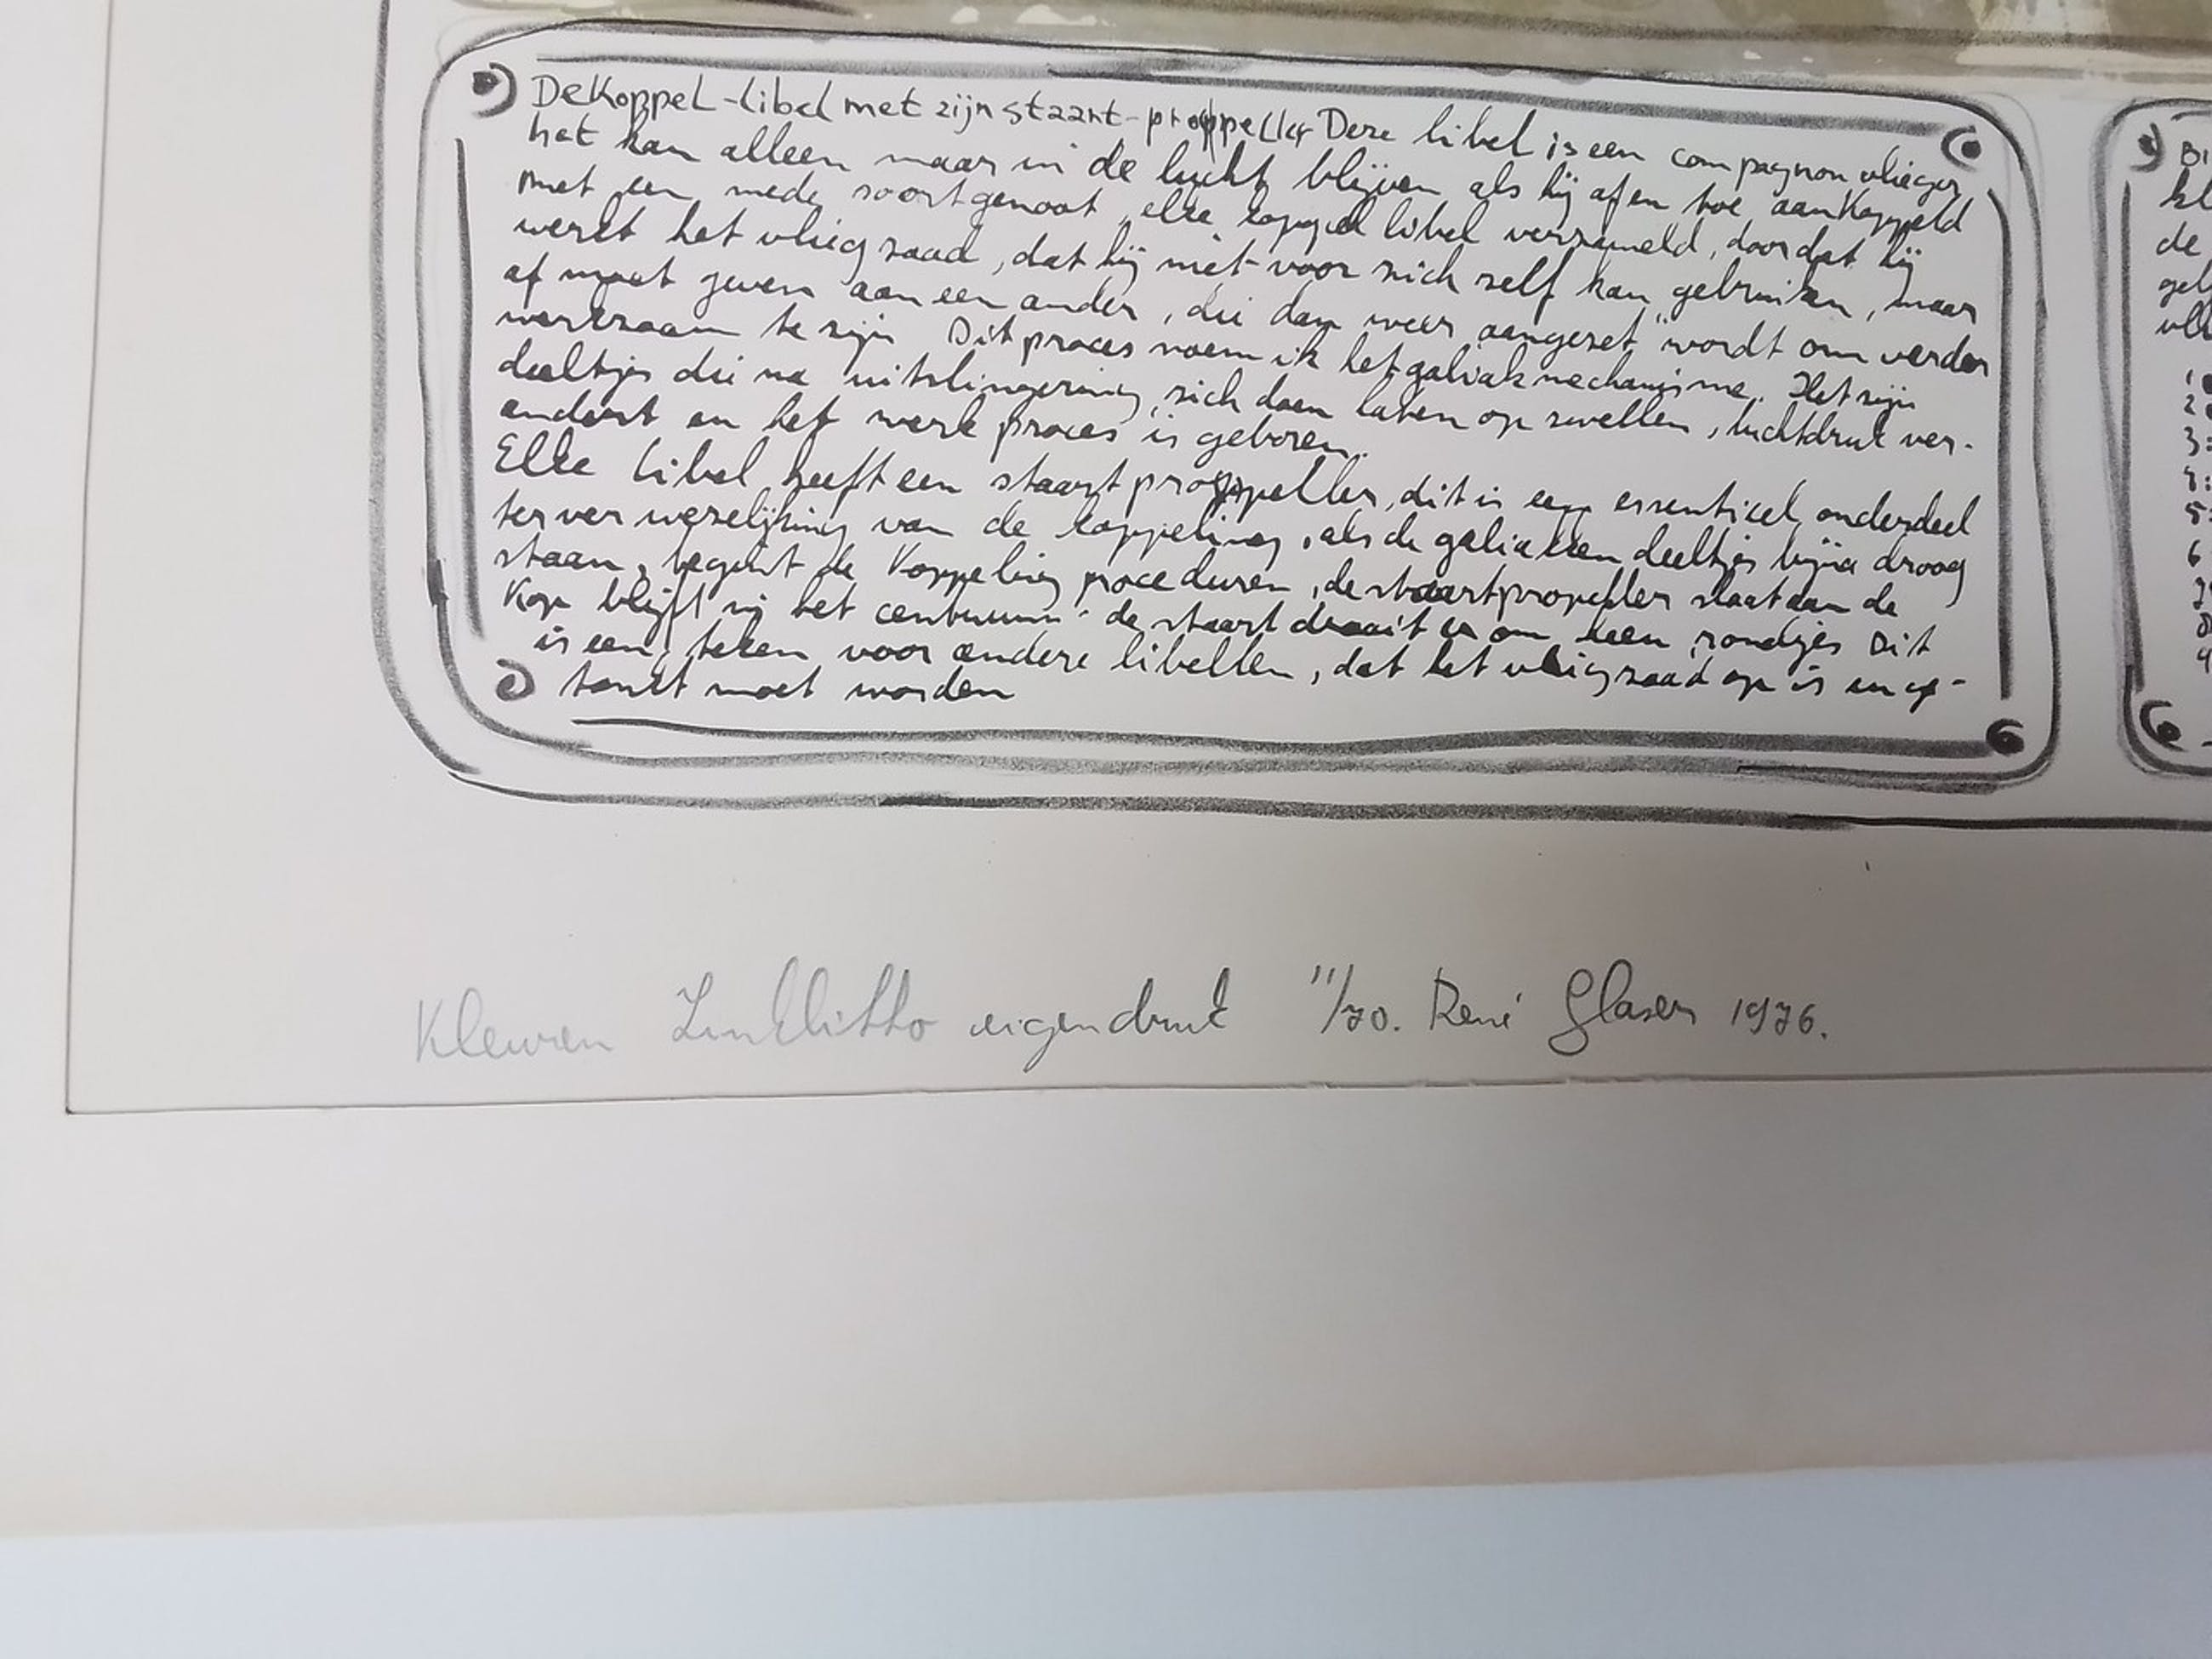 De Koppel-libel met zijn staart-proppeller Deze libel is een compagnon vlieger
het kan alleen maar in de lucht blijven als hij af en toe aankoppeld
met een mede soortgenoot, elke koppel libel verzameld, doordat hij
werkt het vliegzaad, dat hij niet voor zich zelf kan gebruiken, maar
af moet geven aan een ander, die dan weer "aangezet" wordt om verder
werkzaam te zijn Dit proces noem ik het galiak mechanisme. Het zijn
deeltjes die na uitslingering, zich doen laten op zwellen, luchtdruk ver-
andert en het werk proces is geboren.
Elke libel heeft een staart proppeller, dit is een essentieel onderdeel
ter verwezelijking van de koppeling, als de galiakken deeltjes bijna droog
staan, begint de Koppeling proceduren, de staartpropeller slaat aan de
Kop blijft in het centruum de staart draait er om heen rondjes Dit
is een teken voor andere libellen, dat het vliegzaad op is en ge-
tankt moet worden
Bi
de
1
2
3:
4:
5
6
9
Kleuren Zinklitho eigendruk 11/70. René Glaser 1976.